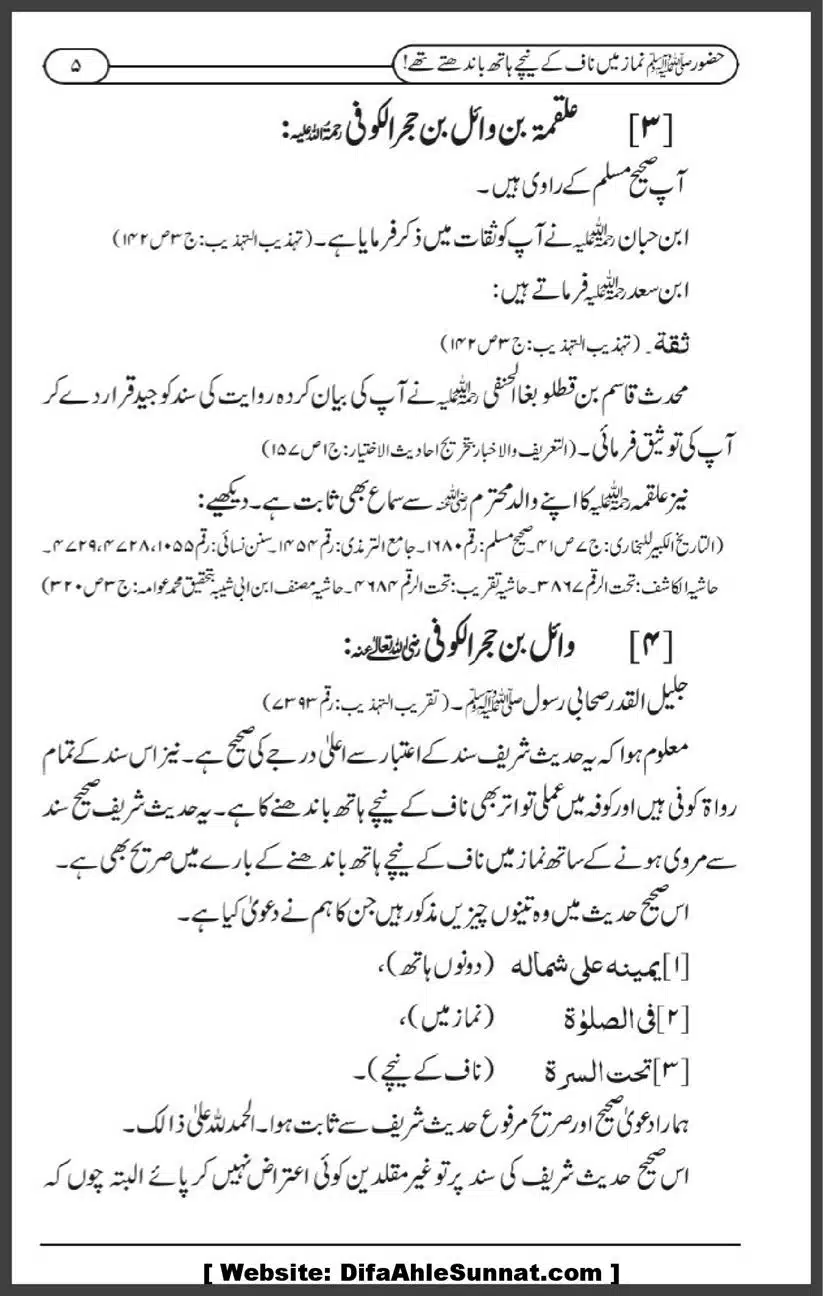 حضور صلی اللہ علیہ وسلم نماز میں ناف کے نیچے ہاتھ باندھتے تھے!
۵
[۳] علقمۃ بن وائل بن حجر الکوفی رحمۃ اللہ علیہ:
آپ صحیح مسلم کے راوی ہیں۔
ابن حبان رحمۃ اللہ علیہ نے آپ کو ثقات میں ذکر فرمایا ہے۔ (تہذیب التہذیب: ج۳ ص۱۴۲)
ابن سعد رحمۃ اللہ علیہ فرماتے ہیں:
ثقة۔ (تہذیب التہذیب: ج۳ ص۱۴۲)
محدث قاسم بن قطلوبغا الحنفی رحمۃ اللہ علیہ نے آپ کی بیان کردہ روایت کی سند کو جید قرار دے کر
آپ کی توثیق فرمائی۔ (التعریف والاخبار بتخریج احادیث الاختیار: ج۱ ص۱۵۷)
نیز علقمہ رحمۃ اللہ علیہ کا اپنے والد محترم رضی اللہ عنہ سے سماع بھی ثابت ہے۔ دیکھیے:
(التاریخ الکبیر للبخاری: ج۷ ص۴۱۔ صحیح مسلم: رقم ۱۶۸۰۔ جامع الترمذی: رقم ۱۴۵۴۔ سنن نسائی: رقم ۱۰۵۵، ۴۷۲۸، ۴۷۲۹۔
حاشیہ الکاشف: تحت الرقم ۳۸۶۷۔ حاشیہ تقریب: تحت الرقم ۴۶۸۴۔ حاشیہ مصنف ابن ابی شیبہ بتحقیق محمد عوامہ: ج۳ ص۳۲۰)
[۴] وائل بن حجر الکوفی رضی اللہ تعالیٰ عنہ:
جلیل القدر صحابی رسول صلی اللہ علیہ وسلم۔ (تقریب التہذیب: رقم ۷۳۹۳)
معلوم ہوا کہ یہ حدیث شریف سند کے اعتبار سے اعلیٰ درجے کی صحیح ہے۔ نیز اس سند کے تمام
رواۃ کوفی ہیں اور کوفہ میں عملی تواتر بھی ناف کے نیچے ہاتھ باندھنے کا ہے۔ یہ حدیث شریف صحیح سند
سے مروی ہونے کے ساتھ نماز میں ناف کے نیچے ہاتھ باندھنے کے بارے میں صریح بھی ہے۔
اس صحیح حدیث میں وہ تینوں چیزیں مذکور ہیں جن کا ہم نے دعویٰ کیا ہے۔
[۱] یمینه علی شماله (دونوں ہاتھ)،
[۲] فی الصلوٰۃ (نماز میں)،
[۳] تحت السرۃ (ناف کے نیچے)۔
ہمارا دعویٰ صحیح اور صریح مرفوع حدیث شریف سے ثابت ہوا۔ الحمد للہ علیٰ ذالک۔
اس صحیح حدیث شریف کی سند پر تو غیر مقلدین کوئی اعتراض نہیں کر پائے البتہ چوں کہ
[ Website: DifaAhleSunnat.com ]